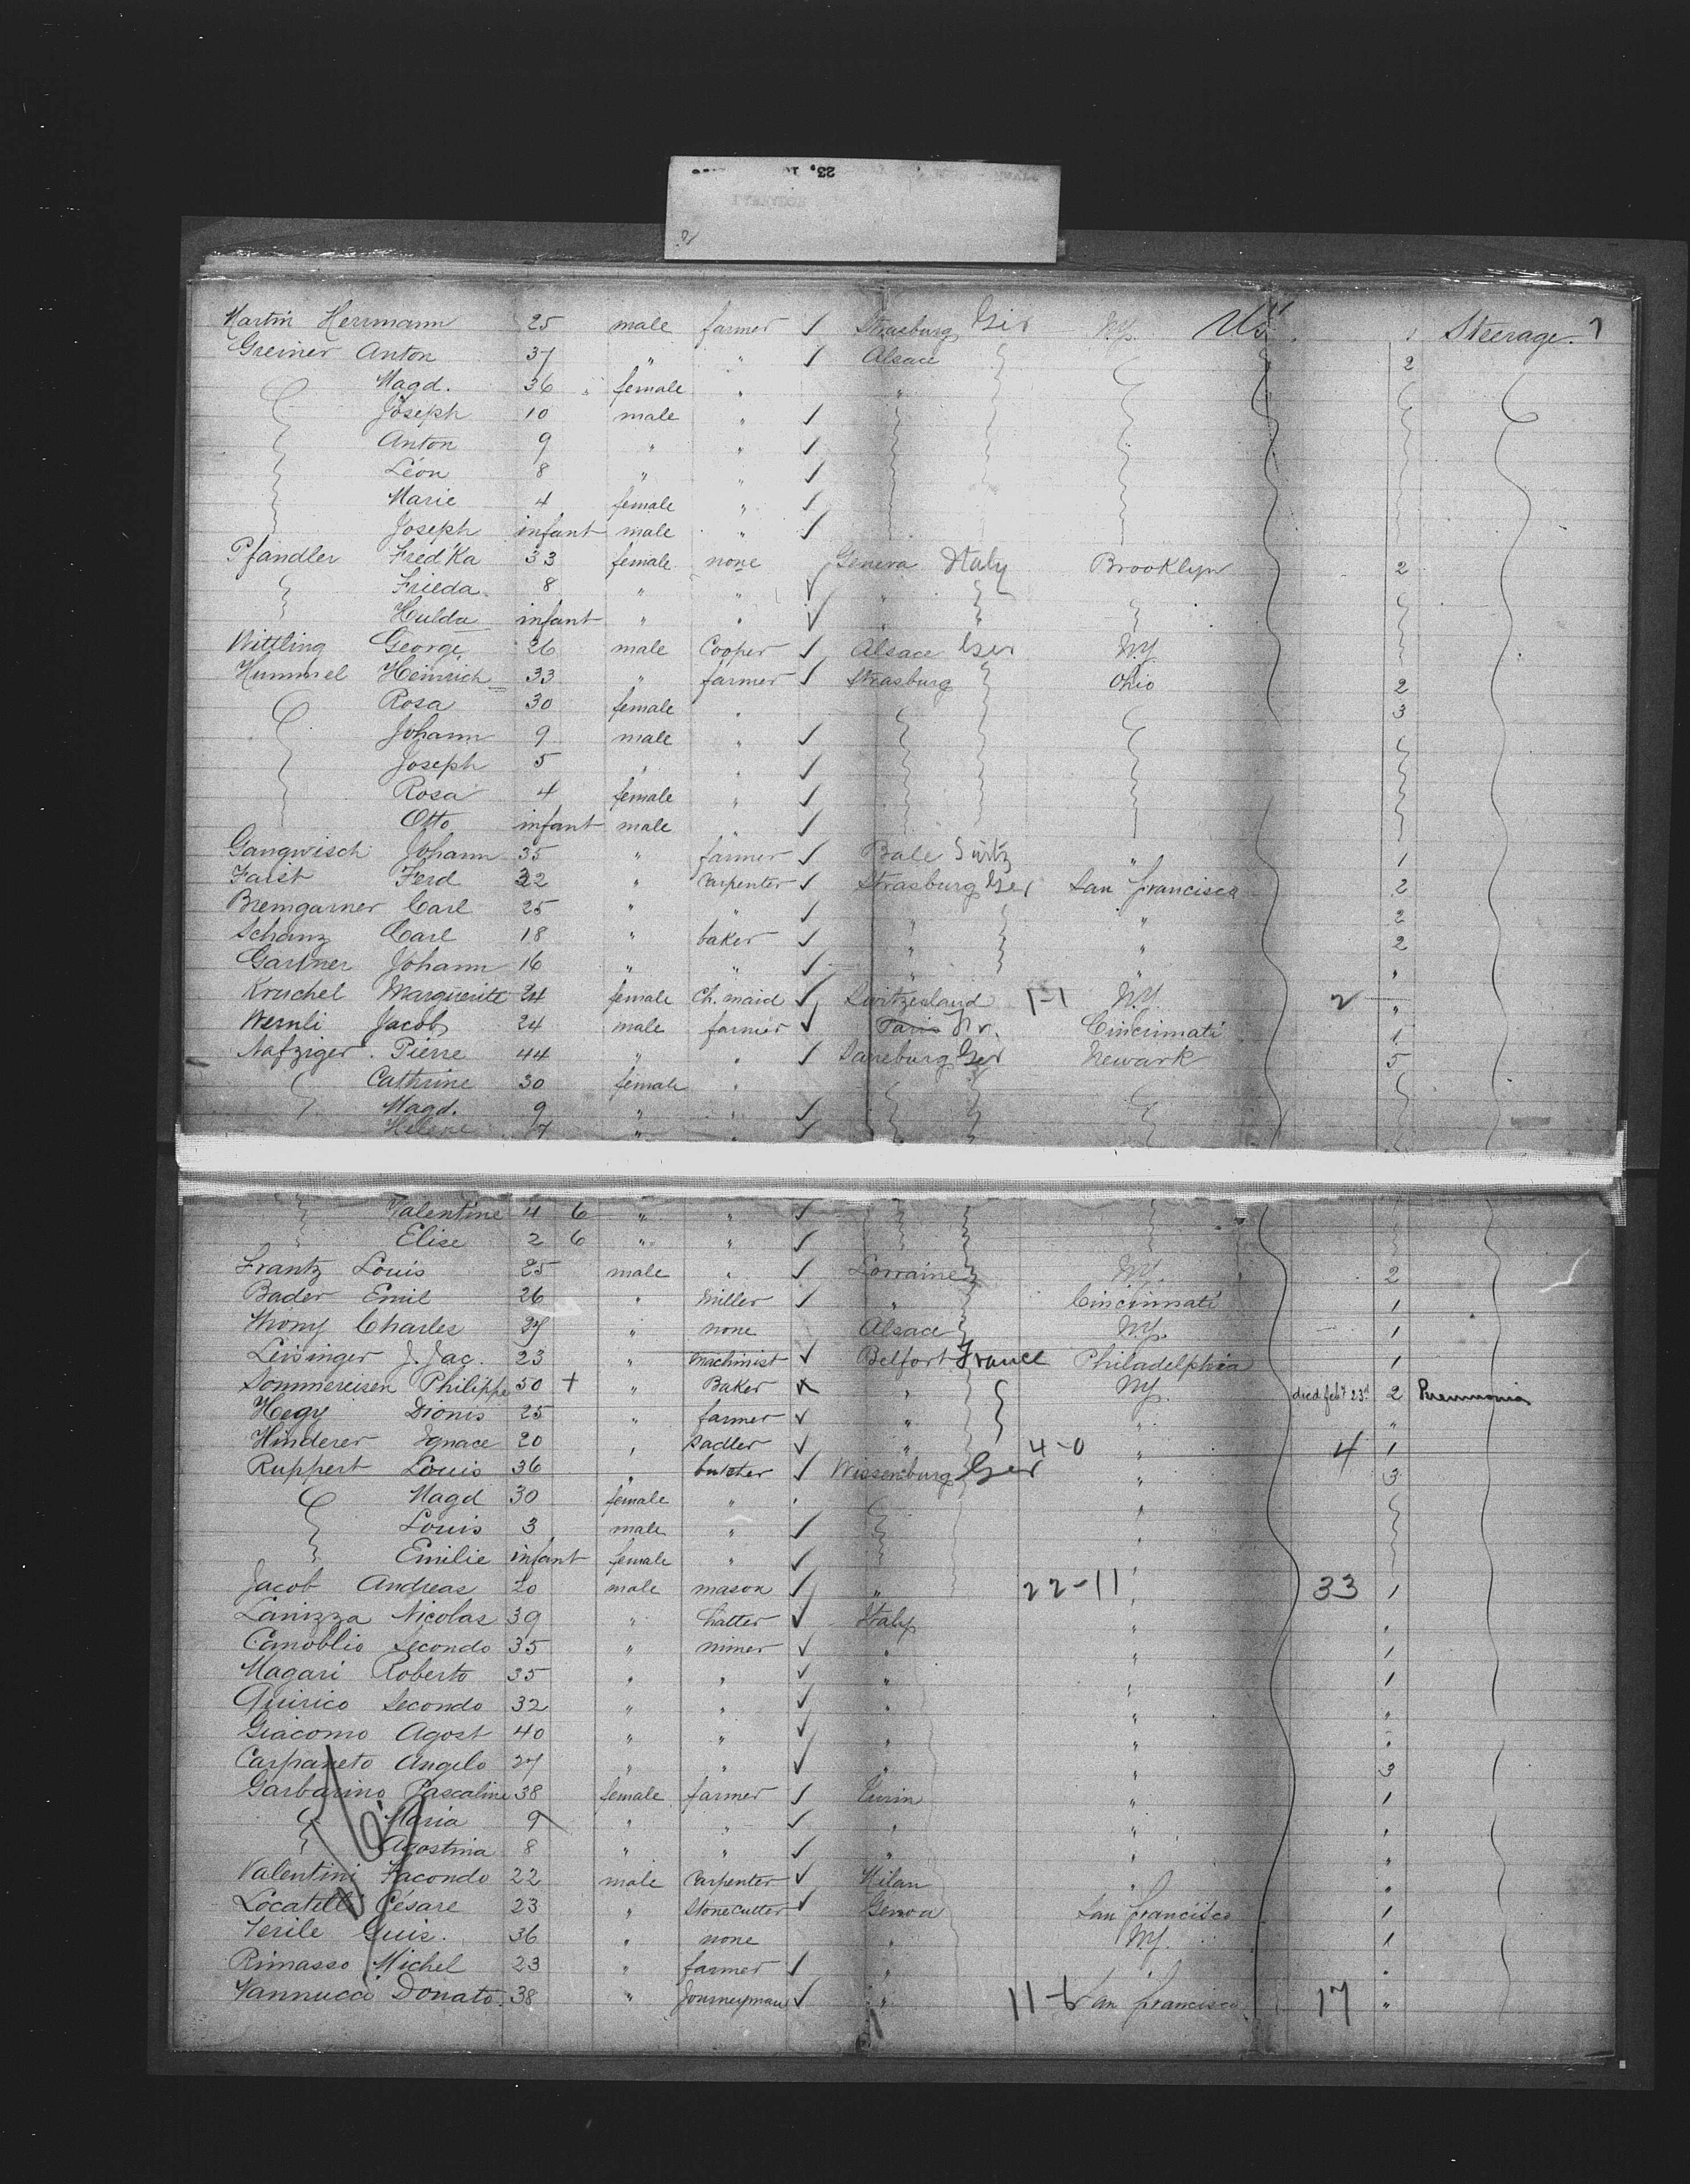 Martin Herrmann 25 male farmer ✓ Strasburg Ger N.Y. U.S. 1 Steerage 1
Greiner Anton 37 " " ✓ Alsace 2
Magd. 36 female " "
Joseph 10 male " ✓
Anton 9 " " ✓
Léon 8 " " ✓
Marie 4 female " ✓
Joseph infant male " ✓
Pfandler Fred'Ka 33 female none Geneva Italy Brooklyn 2
Frieda 8 " " ✓ "
Hulda infant " " ✓ " "
Wittling George 26 male Cooper ✓ Alsace Ger N.Y.
Hummel Heinrich 33 " farmer ✓ Strasburg Ohio 2
Rosa 30 female " 3
Johann 9 male " ✓
Joseph 5 " " ✓
Rosa 4 female " ✓
Otto infant male " ✓
Gangwisch Johann 35 " farmer ✓ Bale Switz " 1
Faist Ferd 32 " Carpenter ✓ Strasburg Ger San Francisco 2
Bremgarner Carl 25 " " ✓ " " 2
Schanz Carl 18 " baker ✓ " " 2
Gartner Johann 16 " " ✓ " " "
Kruchel Marguerite 24 female Ch. maid ✓ Switzerland 1-1 N.Y. 2 "
Wernli Jacob 24 male farmer ✓ Paris Fr. Cincinnati 1
Nafziger Pierre 44 " " ✓ Sareburg Ger Newark 5
Cathrine 30 female "
Magd. 9 " " ✓
Helene 7 " " ✓
Valentine 4 6 " " ✓
Elise 2 6 " " ✓
Frantz Louis 25 male " ✓ Lorraine N.Y. 2
Bader Emil 26 " Miller ✓ " Cincinnati 1
Throny Charles 27 " none Alsace N.Y. 1
Leisinger J. Jac. 23 " Machinist ✓ Belfort France Philadelphia 1
Sommereisen Philippe 50 + " Baker ✓ " N.Y. died feb'y 23d 2 Pneumonia
Hegy Dionis 25 " farmer ✓ " " "
Hinderer Ignace 20 " Sadler ✓ " 4-0 " 4 1
Ruppert Louis 36 " butcher ✓ Wissemburg Ger " 3
Magd 30 female " "
Louis 3 male " ✓ "
Emilie infant female " ✓ "
Jacob Andreas 20 male mason ✓ " 22-11 " 33 1
Lanizza Nicolas 39 " hatter ✓ Italy " "
Canoblio Secondo 35 " miner ✓ " " 1
Magari Roberto 35 " " ✓ " " 1
Quirico Secondo 32 " " ✓ " " "
Giacomo Agost 40 " " ✓ " " "
Carpaneto Angelo 27 " " ✓ " " 3
Garbarino Pascaline 38 female farmer ✓ Turin " 1
Maria 9 " " ✓ " " "
Agostina 8 " " ✓ " " "
Valentini Facondo 22 male Carpenter ✓ Milan " "
Locatelli Césare 23 " Stonecutter ✓ Genoa San Francisco 1
Terile Guis. 36 " none " N.Y. 1
Rimasso Michel 23 " farmer ✓ " " "
Vannucci Donato 38 " Journeyman ✓ " 11-6 San Francisco 17 "